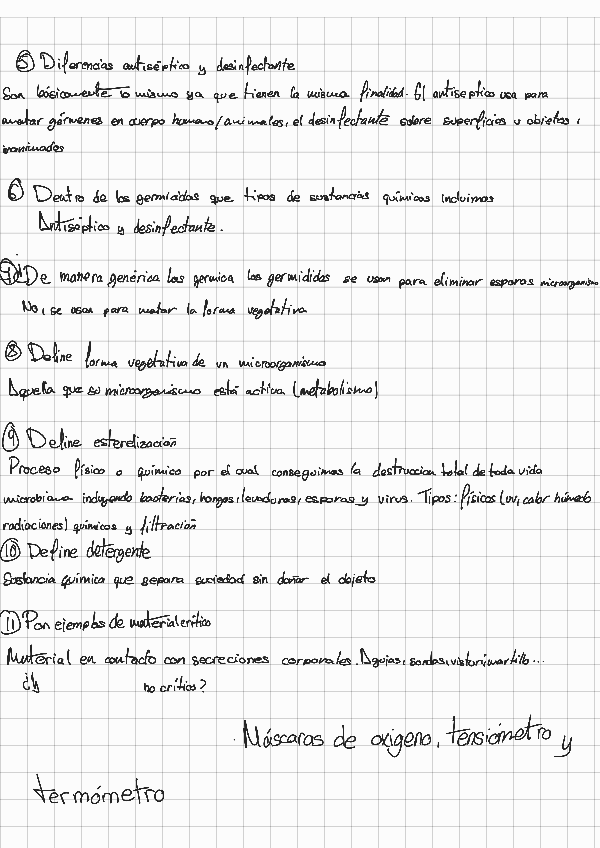 ⑤ Diferencias antiséptico y desinfectante
Son básicamente lo mismo ya que tienen la misma finalidad. El antiseptico usa para
matar gérmenes en cuerpo humano/animales, el desinfectante sobre superficies u objetos
inanimados
⑥ Dentro de los germicidas que tipos de sustancias químicas incluimos
Antiséptico y desinfectante.
De manera genérica los germica los germididas se usan para eliminar esporas microorganismo
No, se usan para matar la forma vegetativa
⑧ Define forma vegetativa de un microorganismo
Aquella que su microorganismo está activa (metabolismo)
⑨ Define esterelización
Proceso físico o químico por el cual conseguimos la destruccion total de toda vida
microbiana incluyendo bacterias, hongos, levaduras, esporas y virus. Tipos: físicos (uv, calor húmedo
radiaciones) químicos y filtración
⑩ Define detergente
Sustancia química que separa suciedad sin dañar el objeto
⑪ Pon ejemplos de material crítico
Material en contacto con secreciones corporales. Agujas, sondas, visturi, martillo...
no críticos?
Máscaras de oxigeno, tensiómetro y
termómetro